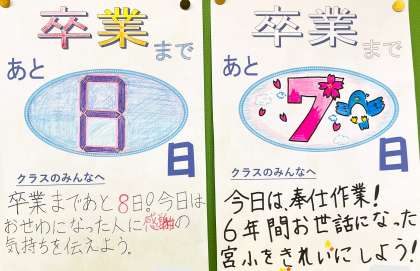 卒業まで
あと
8
日
クラスのみんなへ
卒業まであと8日!今日は
おせわになった人に感謝の
気持ちを伝えよう。
卒業まで
あと
7
日
クラスのみんなへ
今日は、奉仕作業!
6年間お世話になった
宮小をきれいにしよう!